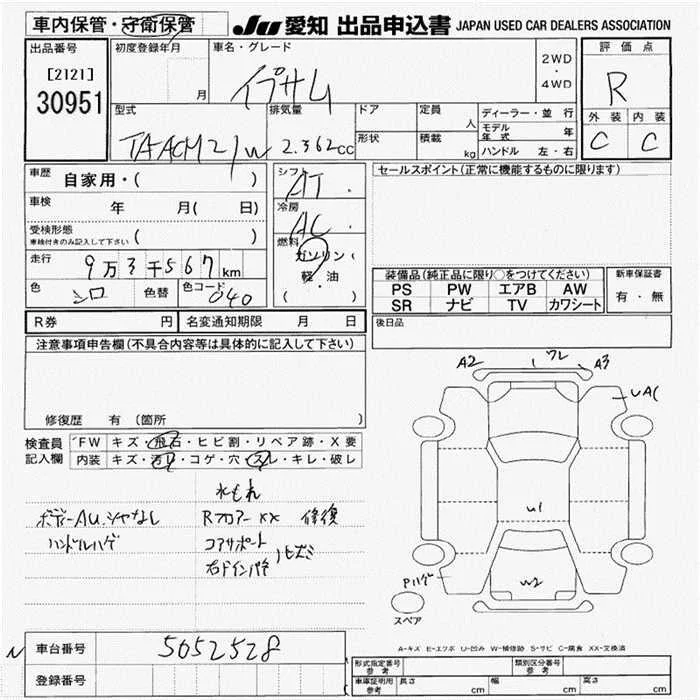 車内保管・守衛保管 JU 愛知 出品申込書 JAPAN USED CAR DEALERS ASSOCIATION
出品番号 初度登録年月 車名・グレード 2WD・4WD 評価点
[2121]
30951 月 イプサム R
型式 排気量 ドア 定員 人 ディーラー・並行 外装 内装
TA-ACM21W 2.362cc 形状 積載 kg モデル年式 年 C C
ハンドル 左・右
車歴 自家用・( ) シフト AT セールスポイント(正常に機能するものに限ります)
車検 年 月( 日) 冷房 AC
受検形態 車検付きのみ記入して下さい ( ) 燃料 ガソリン
走行 9万3千567km 軽・油 装備品(純正品に限り○をつけてください) 新車保証書
色 シロ 色替 色コード 040 ( ) PS PW エアB AW 有・無
SR ナビ TV カワシート
R券 円 名変通知期限 月 日 後日品
注意事項申告欄(不具合内容等は具体的に記入して下さい)
A2 ワレ A3
UA(
修復歴 有(箇所 )
検査員記入欄 FW キズ・飛石・ヒビ割・リペア跡・X要
内装 キズ・汚れ・コゲ・穴・スレ・キレ・破レ
水もれ
ボデーAU.シャなし Rフロアー××修復 U1
ハンドルハゲ コアサポート
右ドインパネ ハヒズミ
Pハゲ U2
スペア
車台番号 5052528 A-キズ E-エクボ U-凹み W-補修跡 S-サビ C-腐食 XX-交換済
登録番号 形式指定番号 参考 類別区分番号 参考
車庫証明用 参考 長さ cm 幅 cm 高さ cm